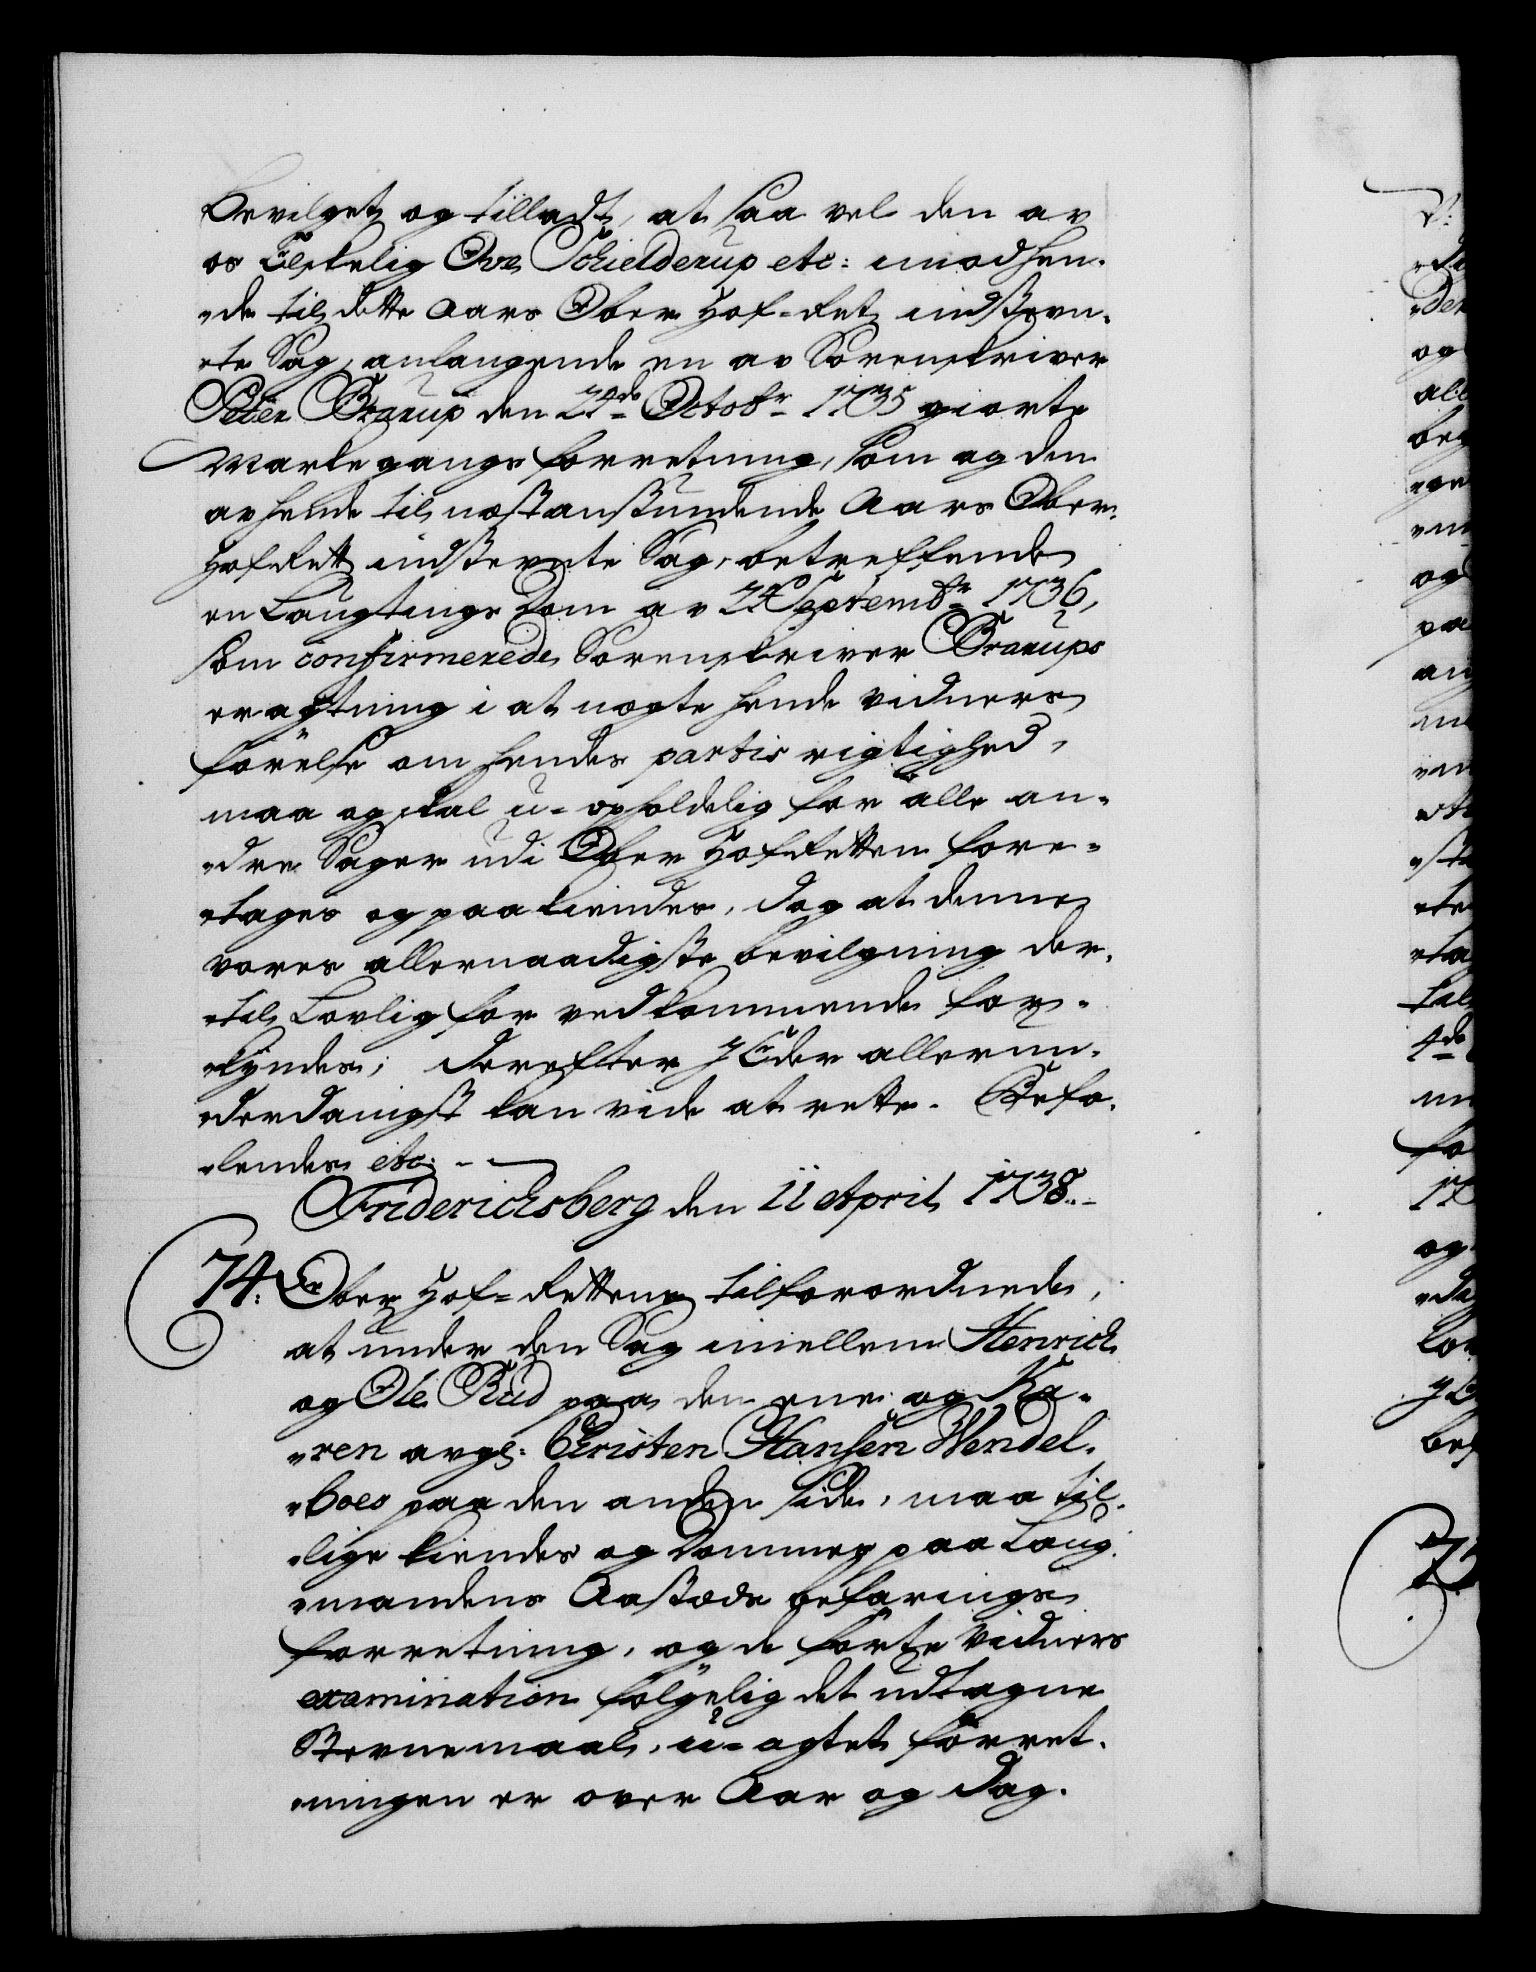 bevilget og tilladt, at saa vel den av
os Elskelig Ove Schielderup etc: imod hen-
-de til dette Aars Ober Hof-Ret indstevn-
-te Sag, anlangende en av Sorenskriver
Peter Brarup den 21de Octobr 1735 giorte
Markegangs forretning, som og den
av hende til næstanstundende Aars Ober-
HofRett indstevnte Sag, betreffende
en Laugtings Dom av Septembr 1736,
som confirmerede Sorenskriver Brarups
eragtning i at nægte hende vidners
førelse om hendes partis rigtighed,
maa og skal u-opholdelig for alle an-
-dre Sager udi Ober HofRetten fore-
-tages og paakiendes, dog at denne
vores allernaadigste bevilgning der-
-til Lovlig for vedkommende for-
-kyndes; Derefter I Eder allerun-
-derdanigst kan vide at rette. Befa-
-lendes etc:
Friderichsberg den 11 April 1738.
74. Ober Hof-Rettens tilforordnede,
at under den Sag imellem Henrich
og Ole Rud paa den ene og Ka-
-ren avgl: Christen Hansen Wendel-
-boes paa den anden side, maa til-
-lige kiendes og Dommes paa Laug-
-mandens Aastæds befarings
forretning, og de førte Vidners
examination følgelig det udtagne
Stevnemaal, u-agtet forret-
-ningen er over Aar og Dag.